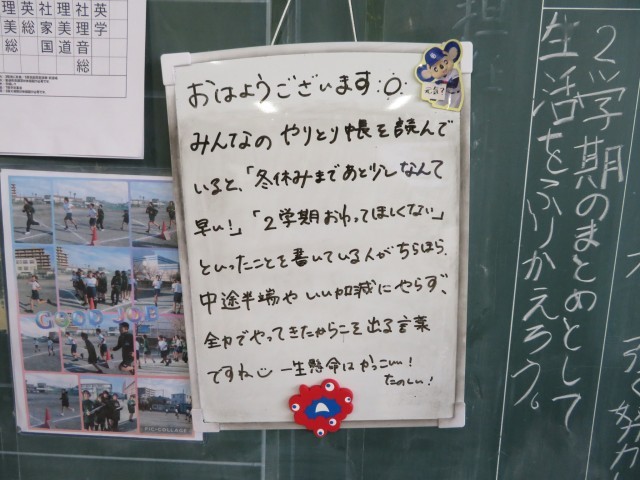 英学
社理音総
理美道
社家国
英総
理美総
GOOD JOB
PIC-COLLAGE
おはようございます:O.
元気？
みんなの やりとり帳を読んで
いると、「冬休みまであと少しなんて
早い!」「2学期おわってほしくない」
といったことを書いている人がちらほら。
中途半端や いい加減にやらず、
全力でやってきたからこそ出る言葉
ですね 一生懸命はかっこいい!
たのしい!
2学期のまとめとして
生活をふりかえろう。